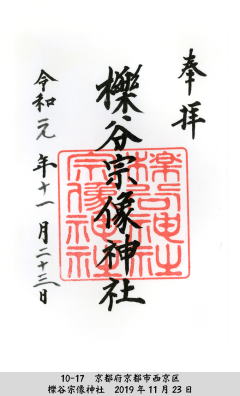 奉拝
櫟谷宗像神社
令和元年十一月二十三日
櫟谷神社
宗像神社
10-17　京都府京都市西京区
櫟谷宗像神社　2019年11月23日